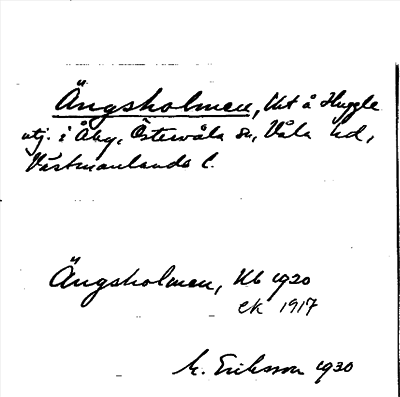 Ängsholmen, lht å Huggle
utj. i Åby, Östervåla sn, Våla hd,
Västmanlands l.
Ängsholmen, Kb 1920
ek 1917
M. Eriksson 1930